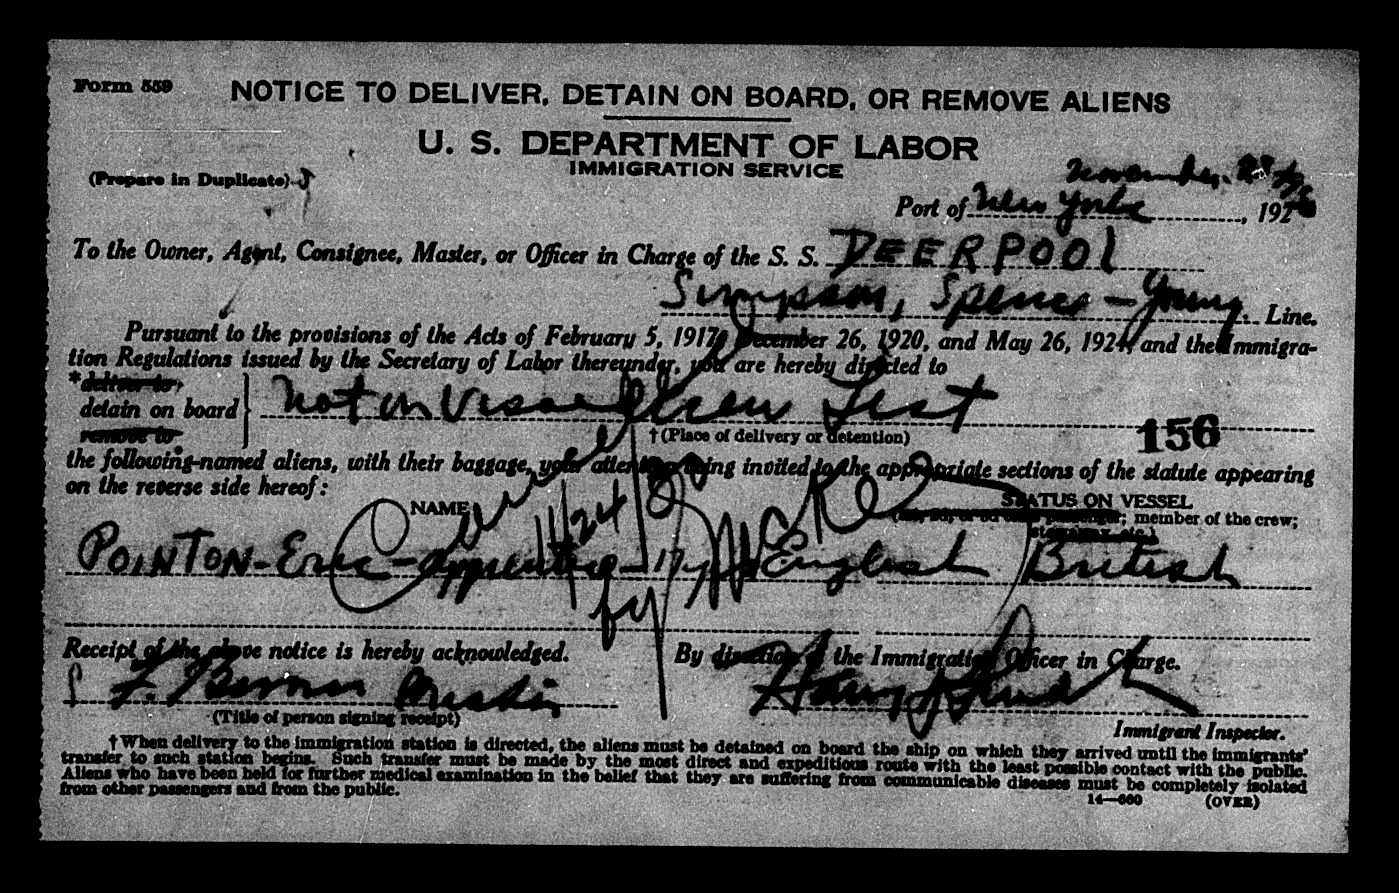 Form 559
NOTICE TO DELIVER, DETAIN ON BOARD, OR REMOVE ALIENS
U. S. DEPARTMENT OF LABOR
IMMIGRATION SERVICE
(Prepare in Duplicate)
November
Port of New York, 192
To the Owner, Agent, Consignee, Master, or Officer in Charge of the S. S. DEERPOOl
Simpson, Spence - Young. Line.
Pursuant to the provisions of the Acts of February 5, 1917, December 26, 1920, and May 26, 1924, and the Immigra-
tion Regulations issued by the Secretary of Labor thereunder, you are hereby directed to
*deliver to,
detain on board
remove to
not on Vessel Crew List
†(Place of delivery or detention)
156
the following-named aliens, with their baggage, your attention being invited to the appropriate sections of the statute appearing
on the reverse side hereof:
NAME
STATUS ON VESSEL
member of the crew;
Cancelled
11/24/
by
POINTON - Eric - apprentice - 17 y English British
Receipt of the above notice is hereby acknowledged.
By direction of the Immigration Officer in Charge.
(Title of person signing receipt)
Immigrant Inspector.
†When delivery to the immigration station is directed, the aliens must be detained on board the ship on which they arrived until the immigrants'
transfer to such station begins. Such transfer must be made by the most direct and expeditious route with the least possible contact with the public.
Aliens who have been held for further medical examination in the belief that they are suffering from communicable diseases must be completely isolated
from other passengers and from the public.
14—660
(OVER)